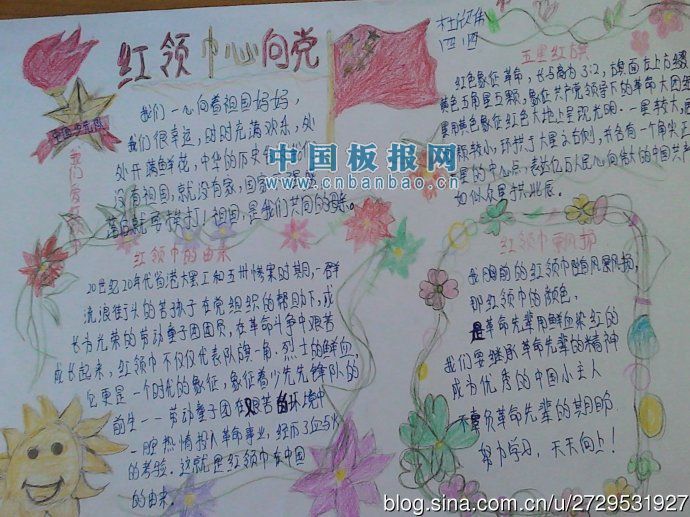 红领巾心向党
我们一心向着祖国妈妈，
我们很幸运，时时充满欢乐，处
处开满鲜花，中华的历史
没有祖国，就没有家，国家
落后就要挨打！祖国，是我们共同的母亲。
我们爱
中国板报网
www.cnbanbao.cn
五星红旗
红色象征革命，长与高为3:2，旗面左上方缀
黄色五角星五颗，象征共产党领导下的革命大团结
星用黄色象征红色大地上呈现光明。一星较大，
颗较小，环拱于大星之右侧，并各有一个角尖正
大星的中心点，表达亿万人民心向伟大的中国共产
如似众星拱北辰。
红领巾的由来
20世纪20年代省港大罢工和五卅惨案时期，一群
流浪街头的苦孩子在党组织的帮助下，成
长为光荣的劳动童子团团员，在革命斗争中艰苦
成长起来，红领巾不仅仅代表队旗一角，烈士的鲜血，
它更是一个时代的象征，象征着少先先锋队的
前生——劳动童子团在艰苦的环境中
一腔热情投入革命事业，经历了血与火
的考验。这就是红领巾在中国
的由来。
红领巾飘扬
是胸前的红领巾随风飘扬，
那红领巾的颜色，
是革命先辈用鲜血染红的
我们要继承革命先辈的精神
成为优秀的中国小主人
不辜负革命先辈的期盼
努力学习，天天向上！
blog.sina.com.cn/u/2729531927